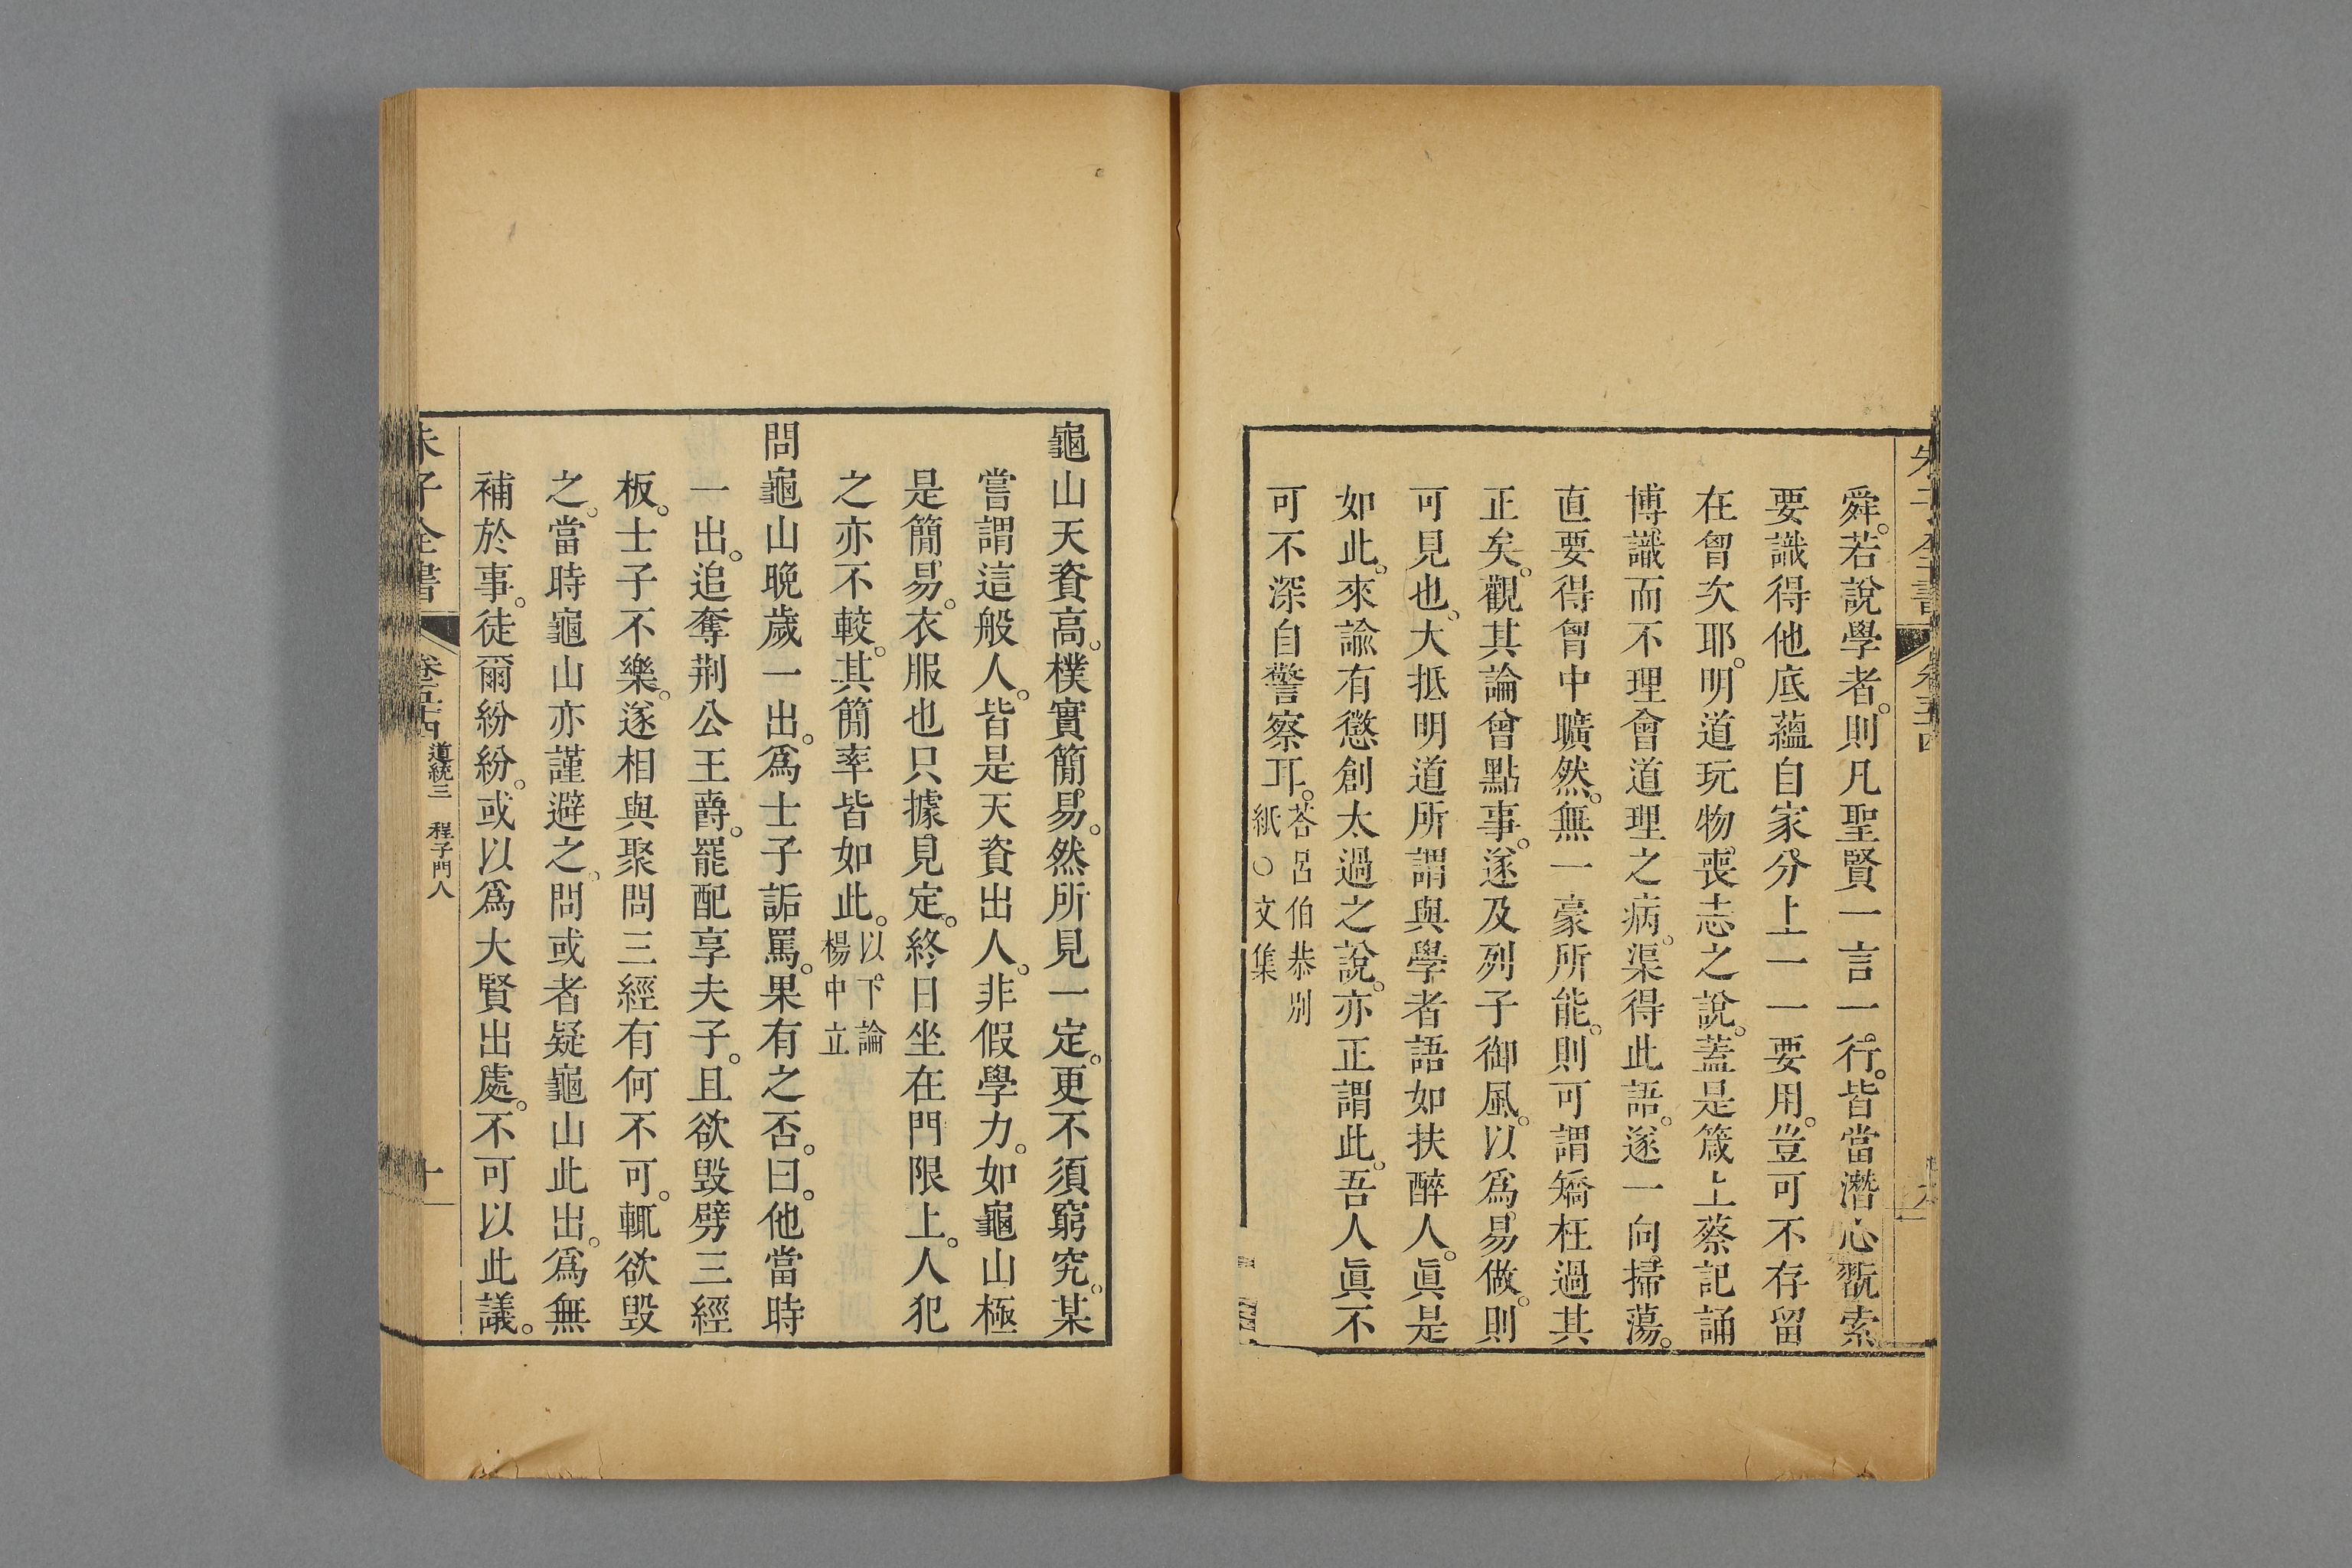 舜。若說學者。則凡聖賢一言一行。皆當潛心翫索
要識得他底蘊自家分上一一要用。豈可不存留
在胷次耶。明道玩物喪志之說。蓋是箴上蔡記誦
博識而不理會道理之病。渠得此語。遂一向掃蕩。
直要得胷中曠然。無一豪所能。則可謂矯枉過其
正矣。觀其論曾點事。遂及列子御風。以爲易做。則
可見也。大抵明道所謂與學者語如扶醉人。眞是
如此。來諭有懲創太過之說。亦正謂此。吾人眞不
可不深自警察耳。荅呂伯恭別
紙○文集
龜山天資高。樸實簡易。然所見一定。更不須窮究。某
嘗謂這般人。皆是天資出人。非假學力。如龜山極
是簡易。衣服也只據見定。終日坐在門限上。人犯
之亦不較。其簡率皆如此。以下論
楊中立
問龜山晚歲一出。爲士子詬罵。果有之否。曰。他當時
一出。追奪荆公王爵。罷配享夫子。且欲毀劈三經
板。士子不樂。遂相與聚問三經有何不可。輒欲毀
之。當時龜山亦謹避之。問或者疑龜山此出。爲無
補於事。徒爾紛紛。或以爲大賢出處。不可以此議。
朱子全書
卷五十四
道統三 程子門人
十